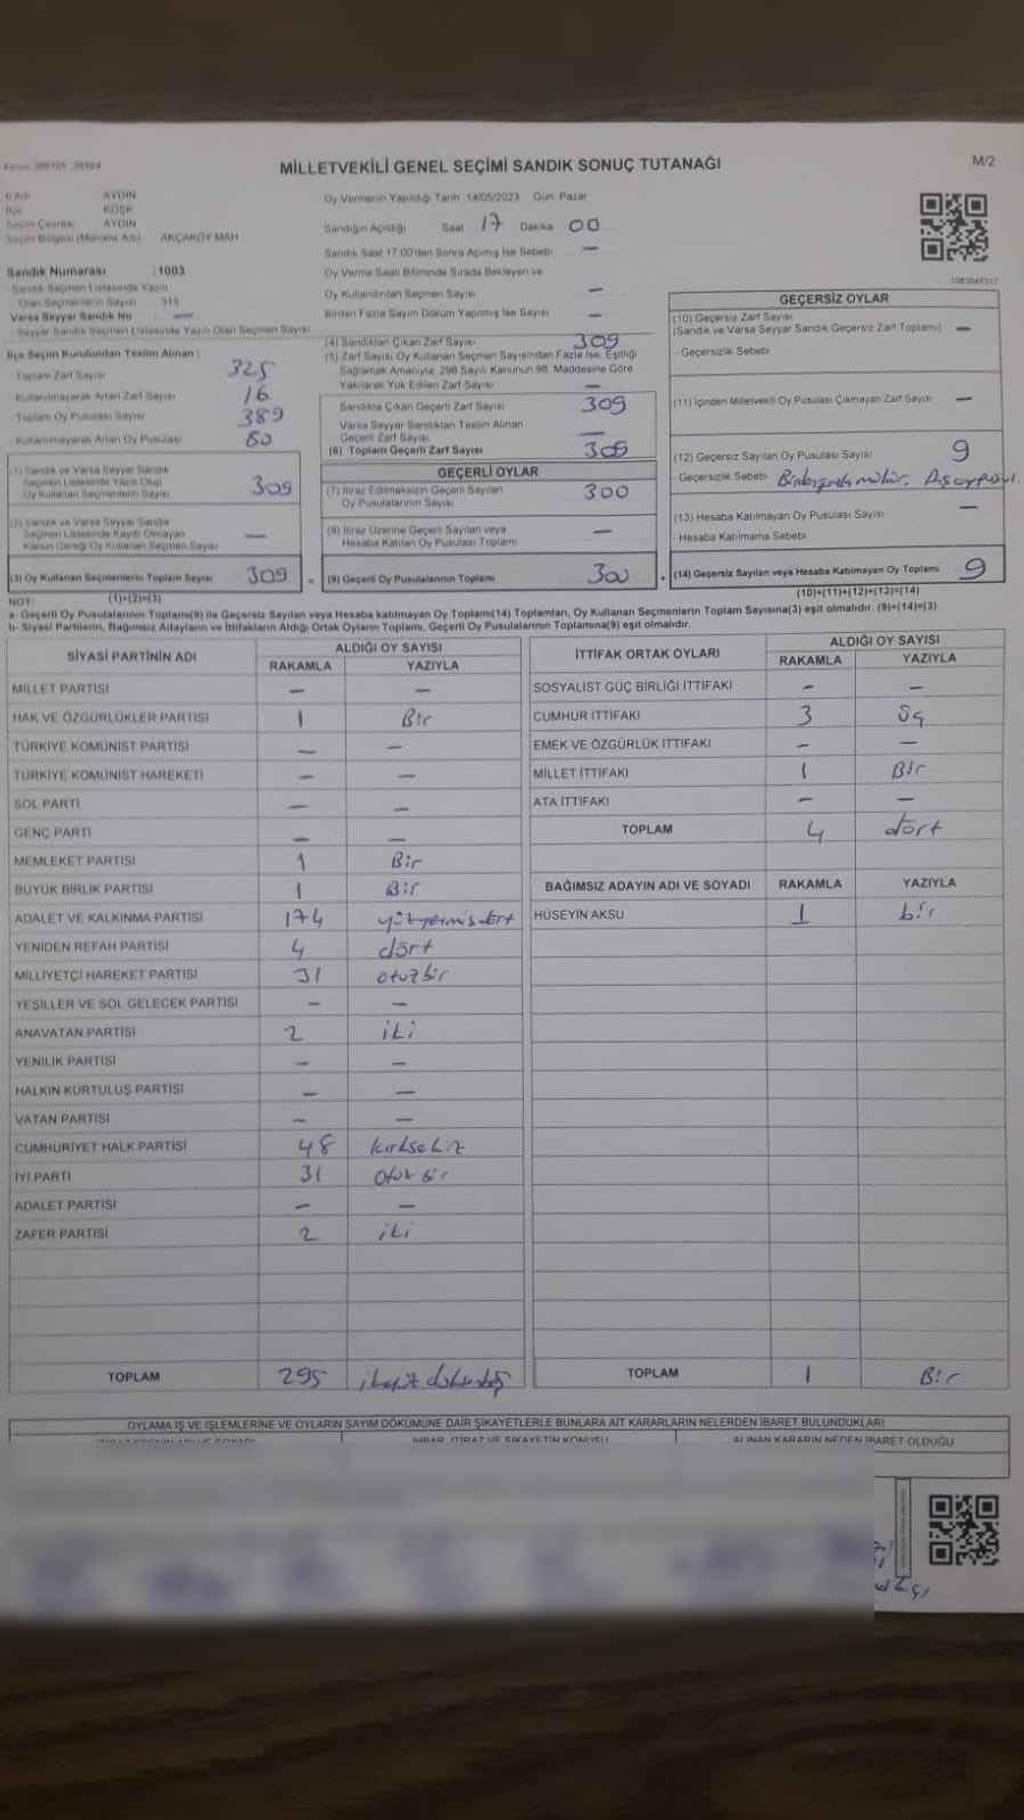 MİLLETVEKİLİ GENEL SEÇİMİ SANDIK SONUÇ TUTANAĞI
M/2
AYDIN
KÖŞK
Seçim Çevresi AYDIN
AKÇAKÖY MAH
Oy Vermenin Yapıldığı Tarih 14/05/2023 Gün: Pazar
Sandığın Açıldığı Saat 17 Dakika 00
Sandık Saat 17:00'den Sonra Açılmış İse Sebebi —
Oy Verme Saati Bitiminde Sırada Bekleyen ve
Oy Kullandırılan Seçmen Sayısı —
Birden Fazla Sayım Döküm Yapılmış İse Sayısı —
Sandık Numarası 1003
Sandık Seçmen Listesinde Yazılı
Olan Seçmenlerin Sayısı 315
Varsa Seyyar Sandık No —
Seyyar Sandık Seçmen Listesinde Yazılı Olan Seçmen Sayısı
İlçe Seçim Kurulundan Teslim Alınan
Toplam Zarf Sayısı 325
Kullanılmayarak Artan Zarf Sayısı 16
Toplam Oy Pusulası Sayısı 389
Kullanılmayarak Artan Oy Pusulası 80
(1) Sandık ve Varsa Seyyar Sandık
Seçmen Listesinde Yazılı Olup
Oy Kullanan Seçmenlerin Sayısı 309
(2) Sandık ve Varsa Seyyar Sandık
Seçmen Listesinde Kayıtlı Olmayan
Kanun Gereği Oy Kullanan Seçmen Sayısı —
(3) Oy Kullanan Seçmenlerin Toplam Sayısı 309
(1)+(2)=(3)
(4) Sandıktan Çıkan Zarf Sayısı 309
(5) Zarf Sayısı Oy Kullanan Seçmen Sayısından Fazla İse, Eşitliği
Sağlamak Amacıyla 298 Sayılı Kanunun 98. Maddesine Göre
Yakılarak Yok Edilen Zarf Sayısı —
Sandıkta Çıkan Geçerli Zarf Sayısı 309
Varsa Seyyar Sandıktan Teslim Alınan
Geçerli Zarf Sayısı —
(6) Toplam Geçerli Zarf Sayısı 309
GEÇERLİ OYLAR
(7) İtiraz Edilmeksizin Geçerli Sayılan
Oy Pusulalarının Sayısı 300
(8) İtiraz Üzerine Geçerli Sayılan veya
Hesaba Katılan Oy Pusulası Toplamı —
(9) Geçerli Oy Pusulalarının Toplamı 300
GEÇERSİZ OYLAR
(10) Geçersiz Zarf Sayısı
(Sandık ve Varsa Seyyar Sandık Geçersiz Zarf Toplamı) —
- Geçersizlik Sebebi
(11) İçinden Milletvekili Oy Pusulası Çıkmayan Zarf Sayısı —
(12) Geçersiz Sayılan Oy Pusulası Sayısı 9
- Geçersizlik Sebebi
(13) Hesaba Katılmayan Oy Pusulası Sayısı —
- Hesaba Katılmama Sebebi
(14) Geçersiz Sayılan veya Hesaba Katılmayan Oy Toplamı 9
(10)+(11)+(12)+(13)=(14)
NOT:
a- Geçerli Oy Pusulalarının Toplamı(9) ile Geçersiz Sayılan veya Hesaba katılmayan Oy Toplamı(14) Toplamları, Oy Kullanan Seçmenlerin Toplam Sayısına(3) eşit olmalıdır. (9)+(14)=(3)
b- Siyasi Partilerin, Bağımsız Adayların ve İttifakların Aldığı Ortak Oyların Toplamı, Geçerli Oy Pusulalarının Toplamına(9) eşit olmalıdır.
SİYASİ PARTİNİN ADI ALDIĞI OY SAYISI
RAKAMLA YAZIYLA
MİLLET PARTİSİ — —
HAK VE ÖZGÜRLÜKLER PARTİSİ 1 Bir
TÜRKİYE KOMÜNİST PARTİSİ — —
TÜRKİYE KOMÜNİST HAREKETİ — —
SOL PARTİ — —
GENÇ PARTİ — —
MEMLEKET PARTİSİ 1 Bir
BÜYÜK BİRLİK PARTİSİ 1 Bir
ADALET VE KALKINMA PARTİSİ 174
YENİDEN REFAH PARTİSİ 4 dört
MİLLİYETÇİ HAREKET PARTİSİ 31 otuzbir
YEŞİLLER VE SOL GELECEK PARTİSİ — —
ANAVATAN PARTİSİ 2 iki
YENİLİK PARTİSİ — —
HALKIN KURTULUŞ PARTİSİ — —
VATAN PARTİSİ — —
CUMHURİYET HALK PARTİSİ 48 kırksekiz
İYİ PARTİ 31 otuz bir
ADALET PARTİSİ — —
ZAFER PARTİSİ 2 iki
TOPLAM 295
İTTİFAK ORTAK OYLARI ALDIĞI OY SAYISI
RAKAMLA YAZIYLA
SOSYALİST GÜÇ BİRLİĞİ İTTİFAKI — —
CUMHUR İTTİFAKI 3 Üç
EMEK VE ÖZGÜRLÜK İTTİFAKI — —
MİLLET İTTİFAKI 1 Bir
ATA İTTİFAKI — —
TOPLAM 4 dört
BAĞIMSIZ ADAYIN ADI VE SOYADI RAKAMLA YAZIYLA
HÜSEYİN AKSU 1 bir
TOPLAM 1 Bir
OYLAMA İŞ VE İŞLEMLERİNE VE OYLARIN SAYIM DÖKÜMÜNE DAİR ŞİKAYETLERLE BUNLARA AİT KARARLARIN NELERDEN İBARET BULUNDUKLARI
ALINAN KARARIN NEDEN İBARET OLDUĞU